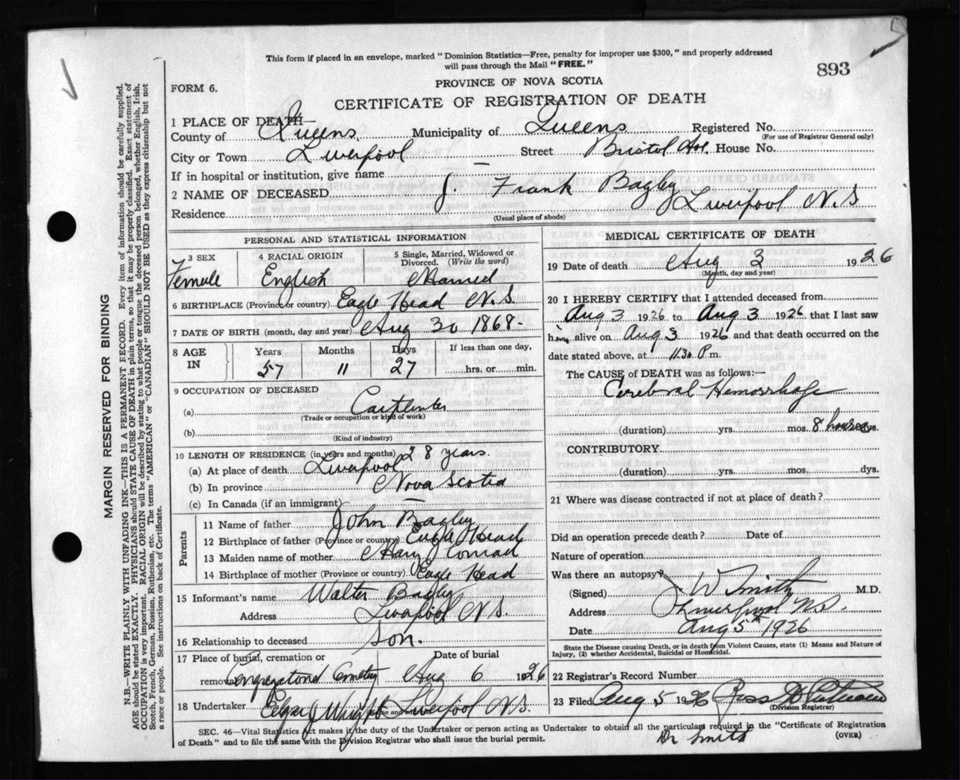 This form if placed in an envelope, marked "Dominion Statistics—Free, penalty for improper use $300," and properly addressed
will pass through the Mail "FREE."
893
PROVINCE OF NOVA SCOTIA
FORM 6.
CERTIFICATE OF REGISTRATION OF DEATH
1 PLACE OF DEATH—
County of Queens Municipality of Queens Registered No.
(For use of Registrar General only)
City or Town Liverpool Street Bristol Ave. House No.
If in hospital or institution, give name —
2 NAME OF DECEASED J. Frank Bagley
Residence Liverpool N.S
(Usual place of abode)
PERSONAL AND STATISTICAL INFORMATION
3 SEX 4 RACIAL ORIGIN 5 Single, Married, Widowed or
Divorced. (Write the word)
Female English Married
6 BIRTHPLACE (Province or country) Eagle Head N.S.
7 DATE OF BIRTH (month, day and year) Aug 30 1868-
8 AGE IN Years Months Days If less than one day,
57 11 27 hrs. or min.
9 OCCUPATION OF DECEASED
(a) Carpenter
(Trade or occupation or kind of work)
(b)
(Kind of industry)
10 LENGTH OF RESIDENCE (in years and months)
(a) At place of death Liverpool 28 years.
(b) In province Nova Scotia
(c) In Canada (if an immigrant) —
Parents
11 Name of father John Bagley
12 Birthplace of father (Province or country) Eagle Head
13 Maiden name of mother Mary J Conrad
14 Birthplace of mother (Province or country) Eagle Head
15 Informant's name Walter Bagley
Address Liverpool N.S.
16 Relationship to deceased son.
17 Place of burial, cremation or Date of burial
removal Congregational Cemetery Aug 6 1926
18 Undertaker Edgar J Wright Liverpool N.S.
MEDICAL CERTIFICATE OF DEATH
19 Date of death Aug 3 1926
(Month, day and year)
20 I HEREBY CERTIFY that I attended deceased from
Aug 3 1926 to Aug 3 1926 that I last saw
him alive on Aug 3 1926 and that death occurred on the
date stated above, at 11.30 P.m.
The CAUSE of DEATH was as follows:—
Cerebral Hemorrhage
(duration) yrs. mos. 8 hours dys.
CONTRIBUTORY
(duration) yrs. mos. dys.
21 Where was disease contracted if not at place of death?
Did an operation precede death? Date of
Nature of operation
Was there an autopsy?
(Signed) J. W Smith M.D.
Address Liverpool N.S.
Date Aug 5th 1926
State the Disease causing Death, or in death from Violent Causes, state (1) Means and Nature of
Injury, (2) whether Accidental, Suicidal or Homicidal.
22 Registrar's Record Number
23 Filed Aug 5 1926 Ross
(Division Registrar)
SEC. 46—Vital Statistics Act makes it the duty of the Undertaker or person acting as Undertaker to obtain all the particulars required in the "Certificate of Registration
of Death" and to file the same with the Division Registrar who shall issue the burial permit. Dr Smith (OVER)
MARGIN RESERVED FOR BINDING
N.B.—WRITE PLAINLY WITH UNFADING INK—THIS IS A PERMANENT RECORD. Every item of information should be carefully supplied.
AGE should be stated EXACTLY. PHYSICIANS should STATE CAUSE OF DEATH in plain terms, so that it may be properly classified. Exact statement of
OCCUPATION is very important. RACIAL ORIGIN will be described by stating to what people or tongue the deceased person belonged, whether English, Irish,
Scotch, French, German, Russian, Ruthenian, etc. The terms "AMERICAN" or "CANADIAN" SHOULD NOT BE USED as they express citizenship but not
a race or people. See instructions on back of Certificate.